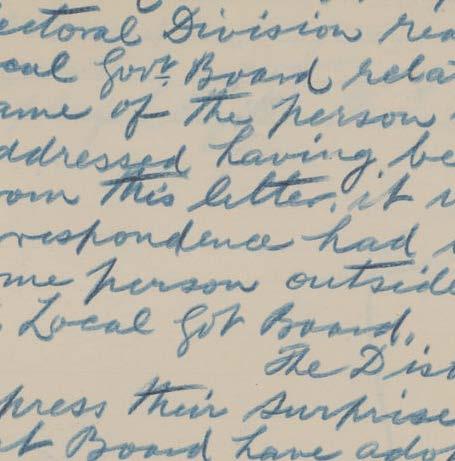 ectoral Division rea
ocal Govt. Board rela
ame of the person
ddressed having be
rom this letter, it w
rrespondence had
me person outside
Local Got Board.
The Dist
press their surprise
nt Board have adop